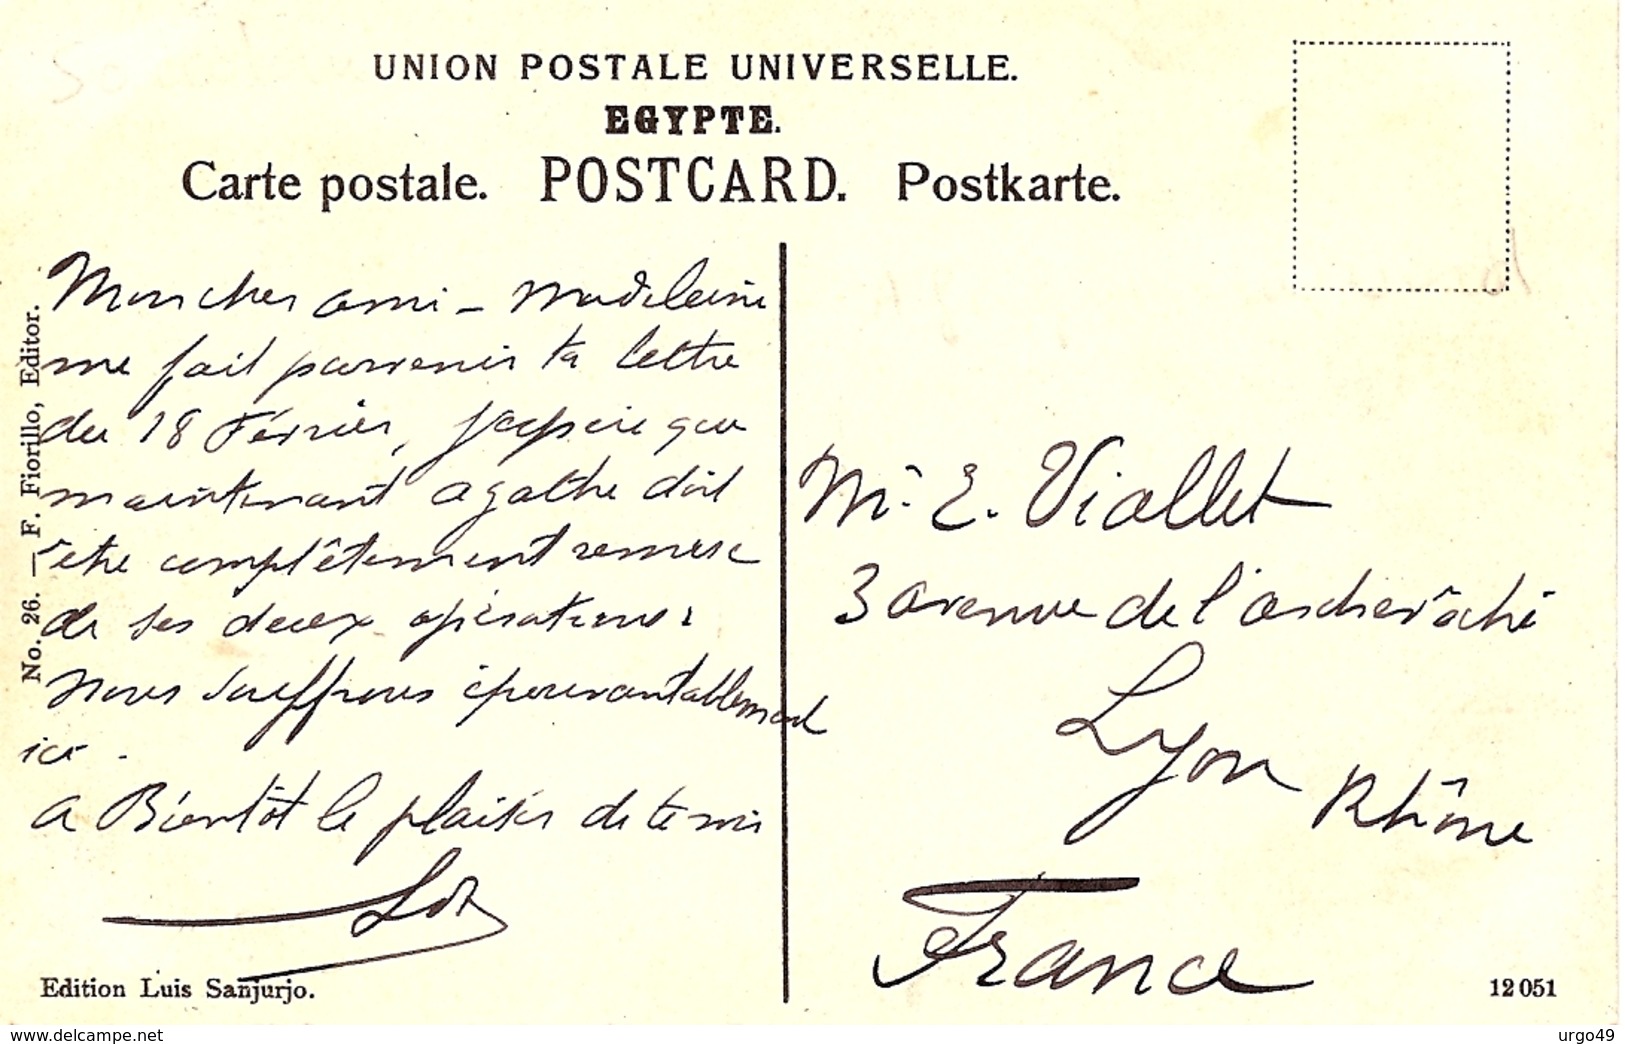 UNION POSTALE UNIVERSELLE.
EGYPTE.
Carte postale. POSTCARD. Postkarte.
No. 26. — F. Fiorillo, Editor.
Mon cher ami - Madeleine
me fait parvenir ta lettre
du 18 Février, j'espère que
maintenant Agathe doit
être complêtement remise
de ses deux opérations.
Nous souffrons épouvantablement
ici.
a Bientôt le plaisir de te voir
Edition Luis Sanjurjo.
Mr. E. Viallet
3 avenue de l'archevêché
Lyon
Rhône
France
12 051
www.delcampe.net
urgo49